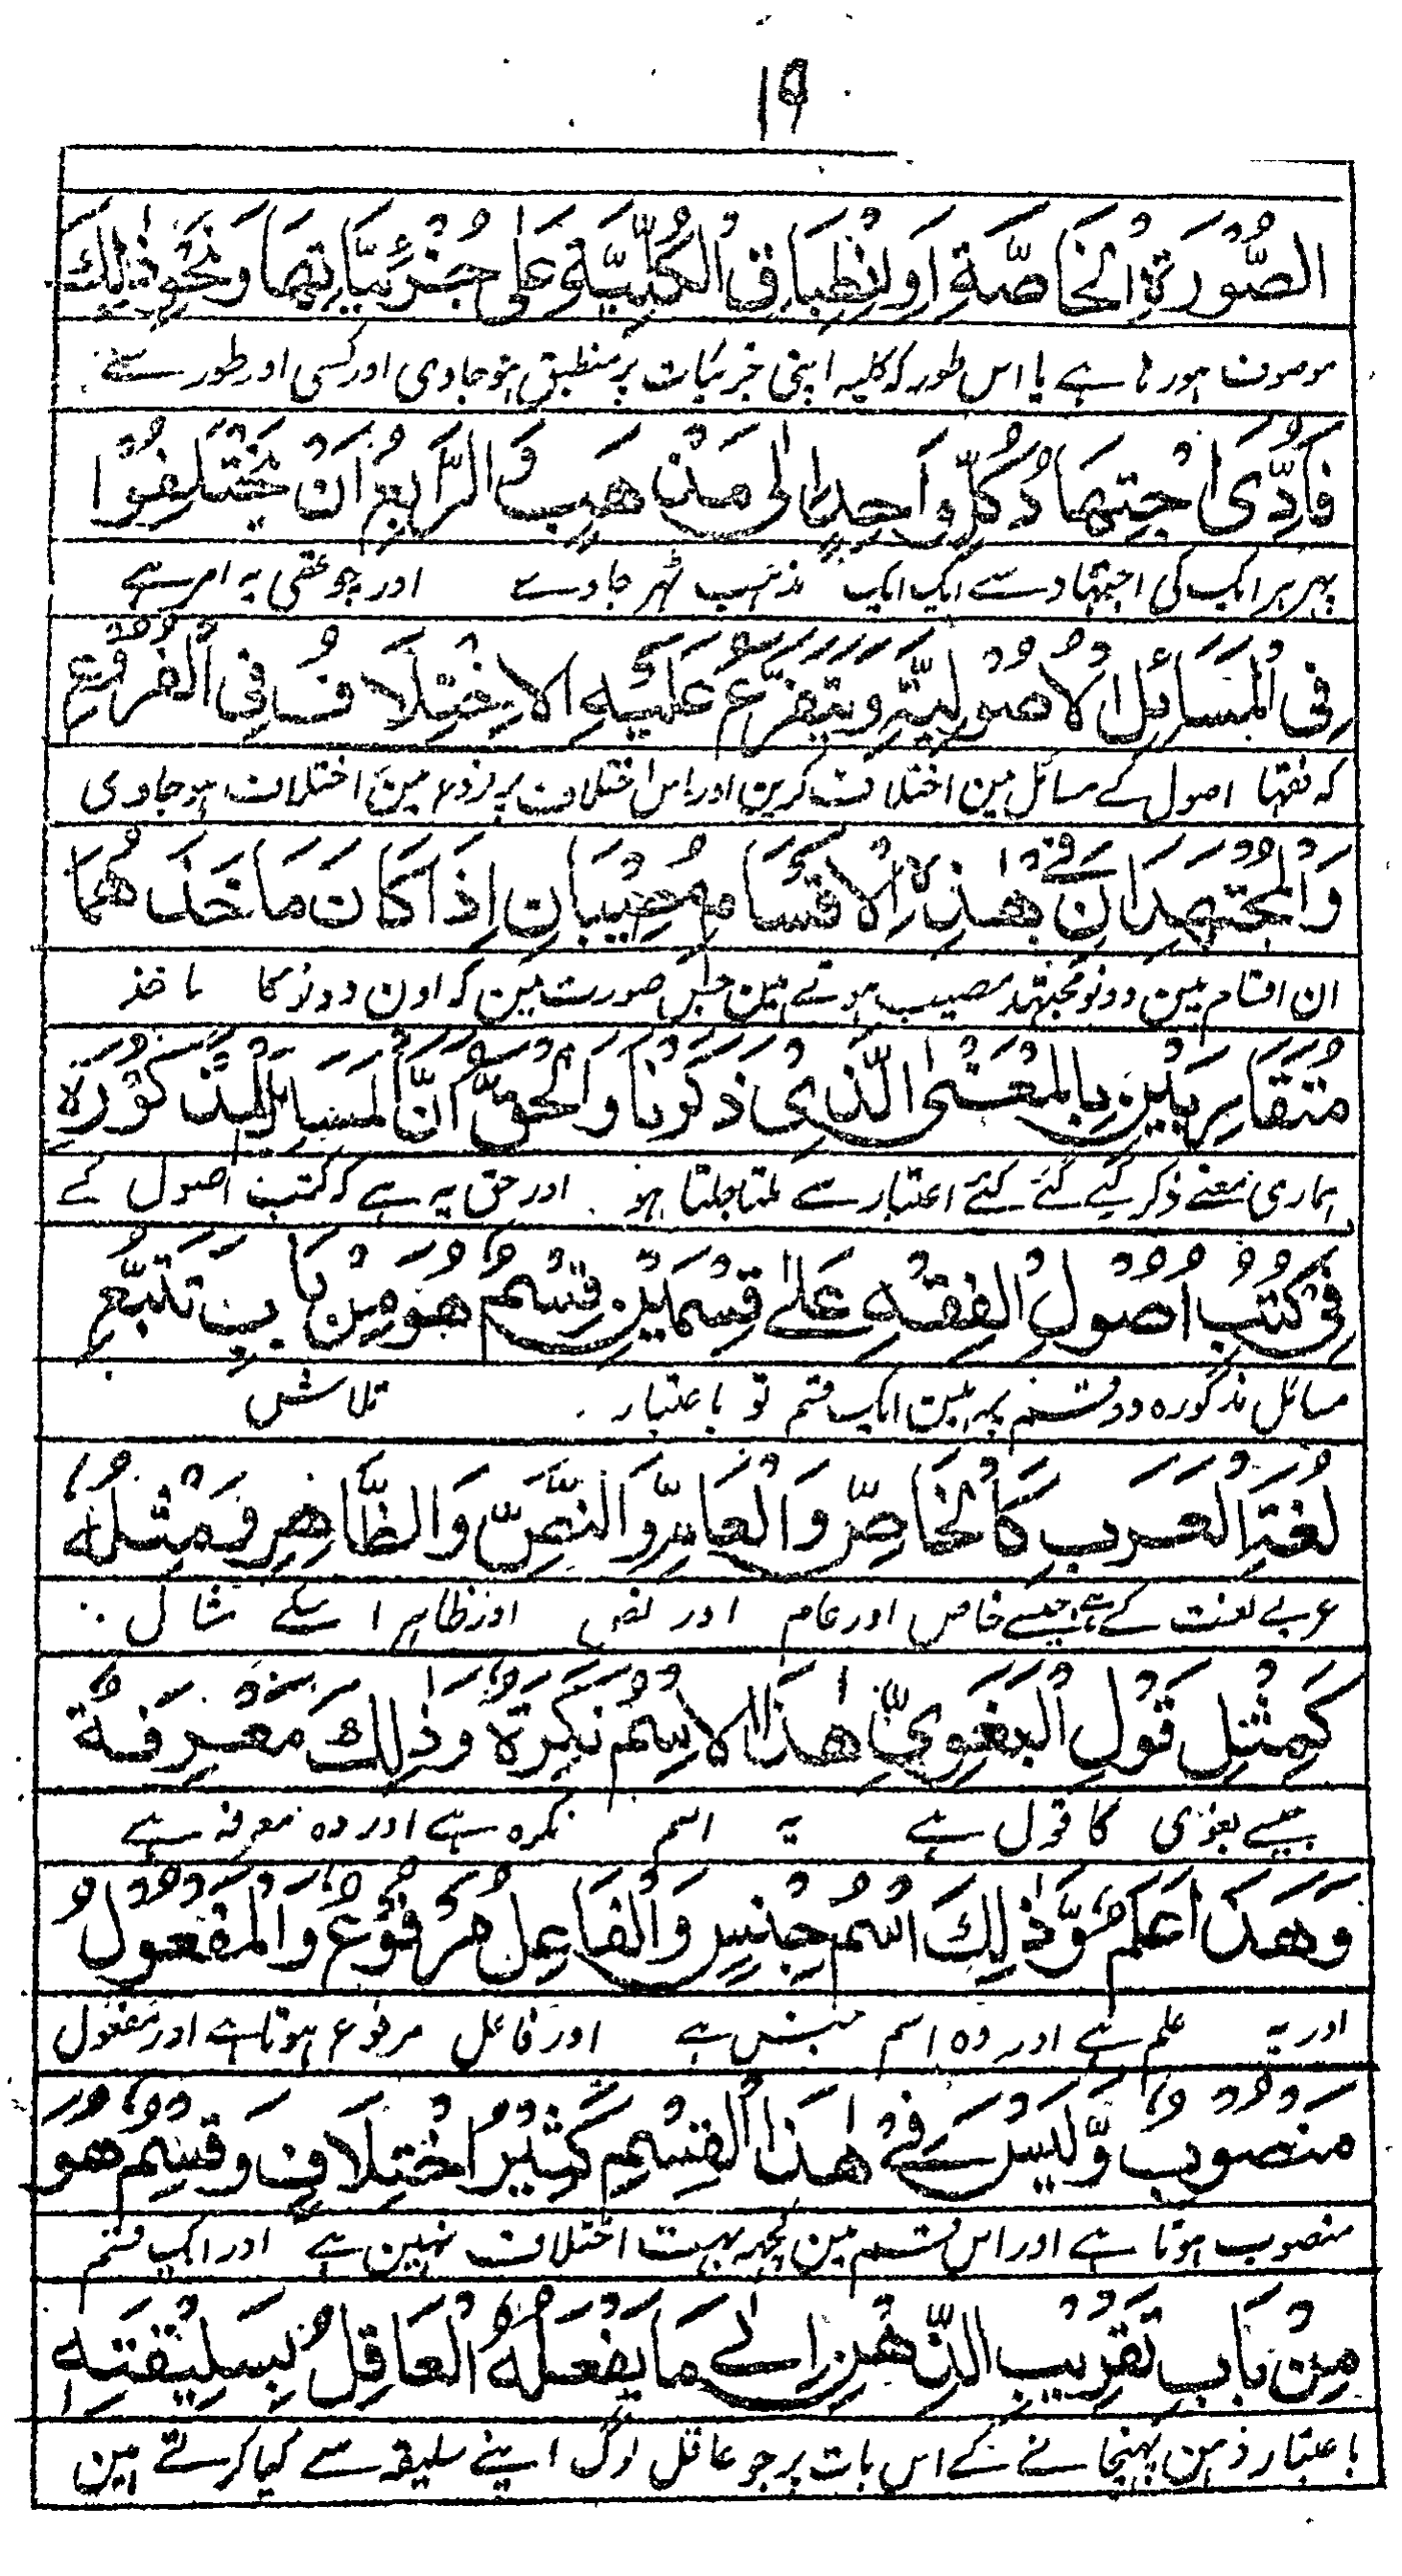 ۱۹
الصُّوْرَةِ الْخَاصَّةِ اَوِ انْطِبَاقِ الْكُلِّيَّةِ عَلٰى جُزْئِيَّاتِهَا وَنَحْوِ ذٰلِكَ
موصوف ہورہا ہے یا اس طور کہ کلیہ اپنی جزئیات پر منطبق ہو جاوی اور کسی اور طور سے
فَاَدّٰى اجْتِهَادُ كُلِّ وَاحِدٍ اِلٰى مَذْهَبٍ وَّالرَّابِعُ اَنْ يَّخْتَلِفُوْا
پہر ہر ایک کی اجتہاد سے ایک ایک مذہب ٹہر جاوے اور چوتھی یہ امر ہے
فِى الْمَسَائِلِ الْاُصُوْلِيَّةِ وَيَتَفَرَّعَ عَلَيْهِ الْاِخْتِلَافُ فِى الْفُرُوْعِ
کہ فقہا اصول کے مسائل مین اختلاف کرین اور اس اختلاف پر فروع مین اختلاف ہو جاوی
وَالْمُجْتَهِدَانِ فِىْ هٰذِهِ الْاَقْسَامِ مُصِيْبَانِ اِذَا كَانَ مَاخَذُهُمَا
ان اقسام مین دونو مجتہد مصیب ہوتے ہین جس صورت مین کہ اون دونو کا ماخذ
مُتَقَارِبَيْنِ بِالْمَعْنَى الَّذِىْ ذَكَرْنَا وَالْحَقُّ اَنَّ الْمَسَائِلَ الْمَذْكُوْرَةَ
ہماری معنے ذکر کیے گئے کئے اعتبار سے ملتا جلتا ہو اور حق یہ ہے کہ کتب اصول کے
فِىْ كُتُبِ اُصُوْلِ الْفِقْهِ عَلٰى قِسْمَيْنِ قِسْمٌ هُوَ مِنْ بَابِ تَتَبُّعِ
مسائل مذکورہ دو قسم پر ہین ایک قسم تو باعتبار تلاش
لُغَةِ الْعَرَبِ كَالْخَاصِّ وَالْعَامِّ وَالنَّصِّ وَالظَّاهِرِ وَمَثَلُهٗ
عربی لغت کے ہے جیسے خاص اور عام اور نص اور ظاہر اسکے مثال
كَمَثَلِ قَوْلِ الْبَغَوِىِّ هٰذَا الْاِسْمُ نَكِرَةٌ وَّذٰلِكَ مَعْرِفَةٌ
جیسے بغوی کا قول ہے یہ اسم نکرہ ہے اور وہ معرفہ ہے
وَهٰذَا عَلَمٌ وَّذٰلِكَ اسْمُ جِنْسٍ وَّالْفَاعِلُ مَرْفُوْعٌ وَّالْمَفْعُوْلُ
اور یہ علم ہے اور وہ اسم جنس ہے اور فاعل مرفوع ہوتا ہے اور مفعول
مَنْصُوْبٌ وَّلَيْسَ فِىْ هٰذَا الْقِسْمِ كَثِيْرُ اخْتِلَافٍ وَقِسْمٌ هُوَ
منصوب ہوتا ہے اور اس قسم مین کچہہ بہت اختلاف نہین ہے اور ایک قسم
مِنْ بَابِ تَقْرِيْبِ الذِّهْنِ اِلٰى مَا يَفْعَلُهُ الْعَاقِلُ بِسَلِيْقَتِهٖ
باعتبار ذہن پہنچانے کے اس بات پر جو عاقل لوگ اپنے سلیقہ سے کیا کرتے ہین